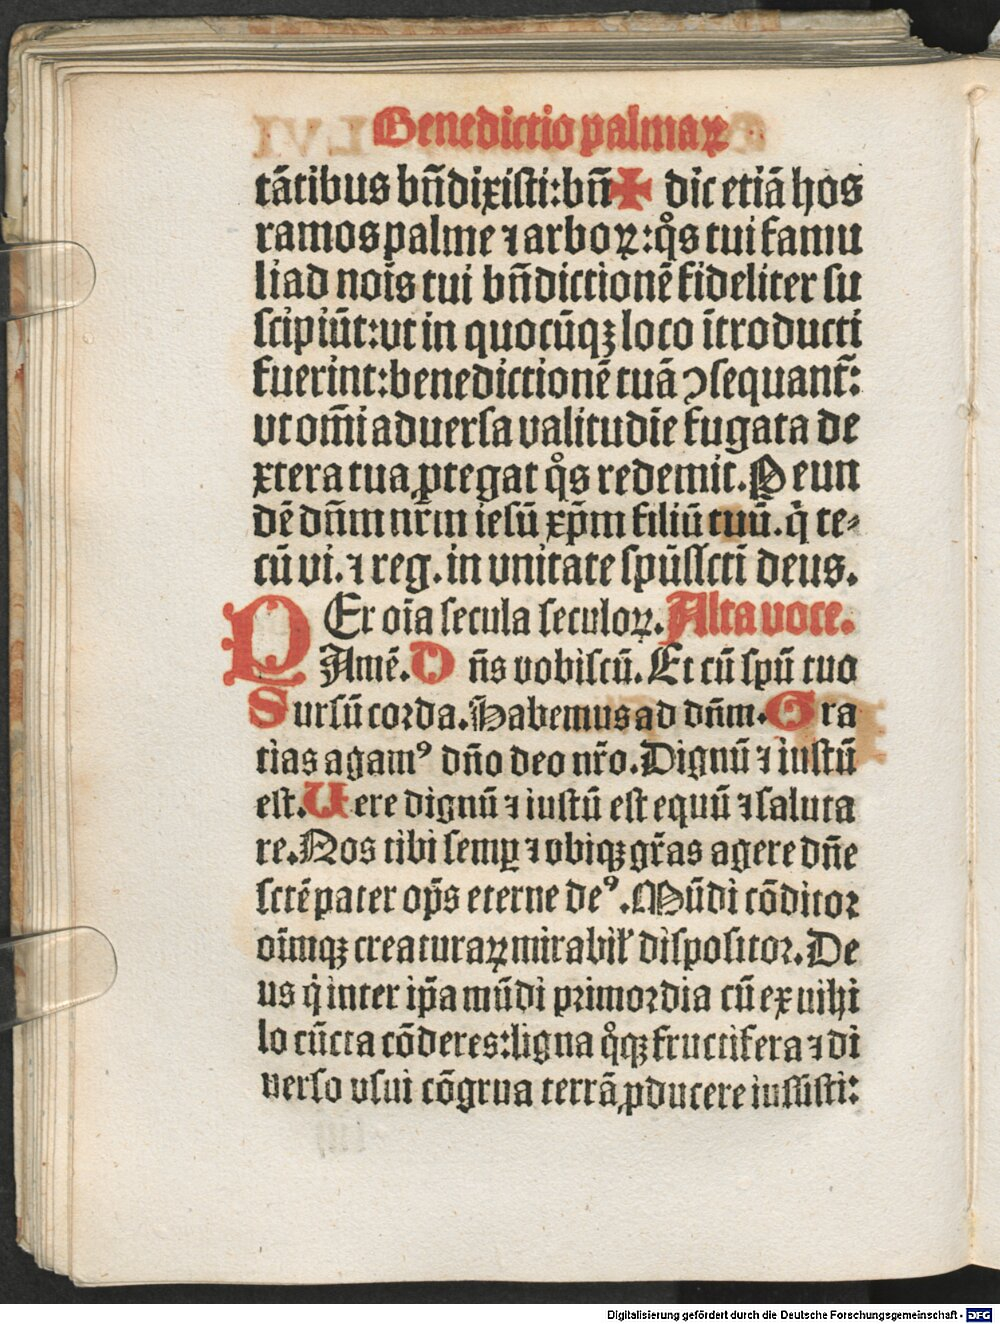 Benedictio palmaꝝ
tãtibus bñdixisti:bñ✠ dic etiã hos
ramos palme ⁊ arboꝝ:q̊s tui famu
li ad nois̃ tui bñdictionẽ fideliter su
scipiũt:ut in quocũqꝫ loco ĩtroducti
fuerint:benedictionẽ tuã ꝯsequant̃:
ut om̃i aduersa valitudĩe fugata de
xtera tua ꝓtegat q̊s redemit. Peun
dẽ dñm nr̃m iesũ xp̃m filiũ tuũ. q̇ te⸗
cũ vi. ⁊ reg. in vnitate spũssctĩ deus.
PEr oĩa secula seculoꝝ. Alta voce.
Amẽ. Dñs vobiscũ. Et cũ spũ tuo
Sursũ corda. Habemus ad dñm. Gra
tias agamꝰ dño deo nr̃o. Dignũ ⁊ iustũ
est. Uere dignũ ⁊ iustũ est equũ ⁊ saluta
re. Nos tibi semꝑ ⁊ vbiqꝫ gr̃as agere dñe
sctẽ pater op̃s eterne deꝰ. Mũdi cõditoꝛ
oĩmqꝫ creaturaꝝ mirabil̃ dispositoꝛ. De
us q̇ inter ip̃a mũdi primoꝛdia cũ ex nihi
lo cũcta cõderes:ligna q̊qꝫ fructifera ⁊ di
uerso vsui cõgrua terrã ꝓducere iussisti:
Digitalisierung gefördert durch die Deutsche Forschungsgemeinschaft - DFG